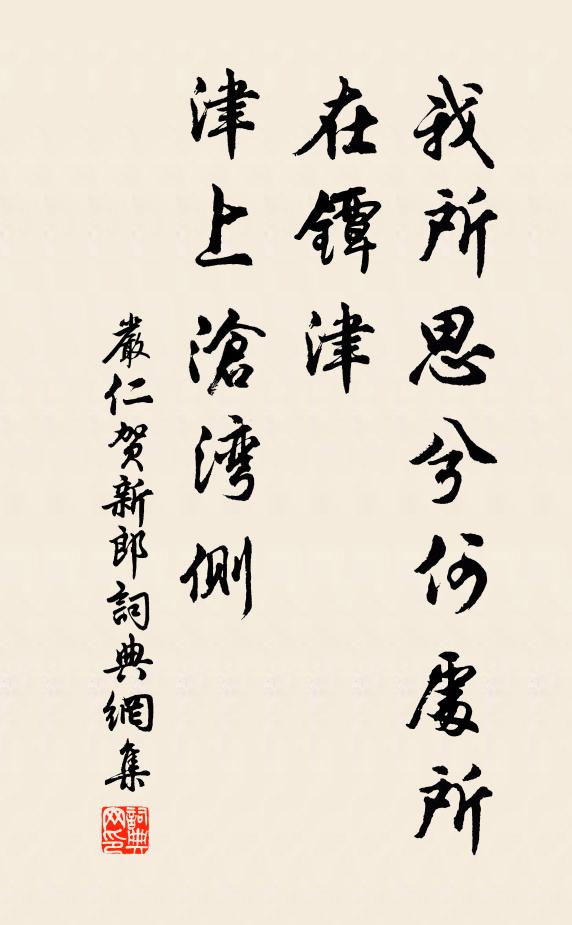 我所思兮何處所
在鐔津
津上滄湾側
嚴仁贺新郎詞典網集
詞典网印